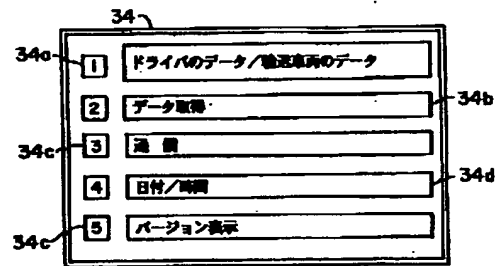 34
34a 1 ドライバのデータ/輸送車両のデータ
2 データ取得 34b
34c 3 通 信
4 日付/時間 34d
34c 5 バージョン表示